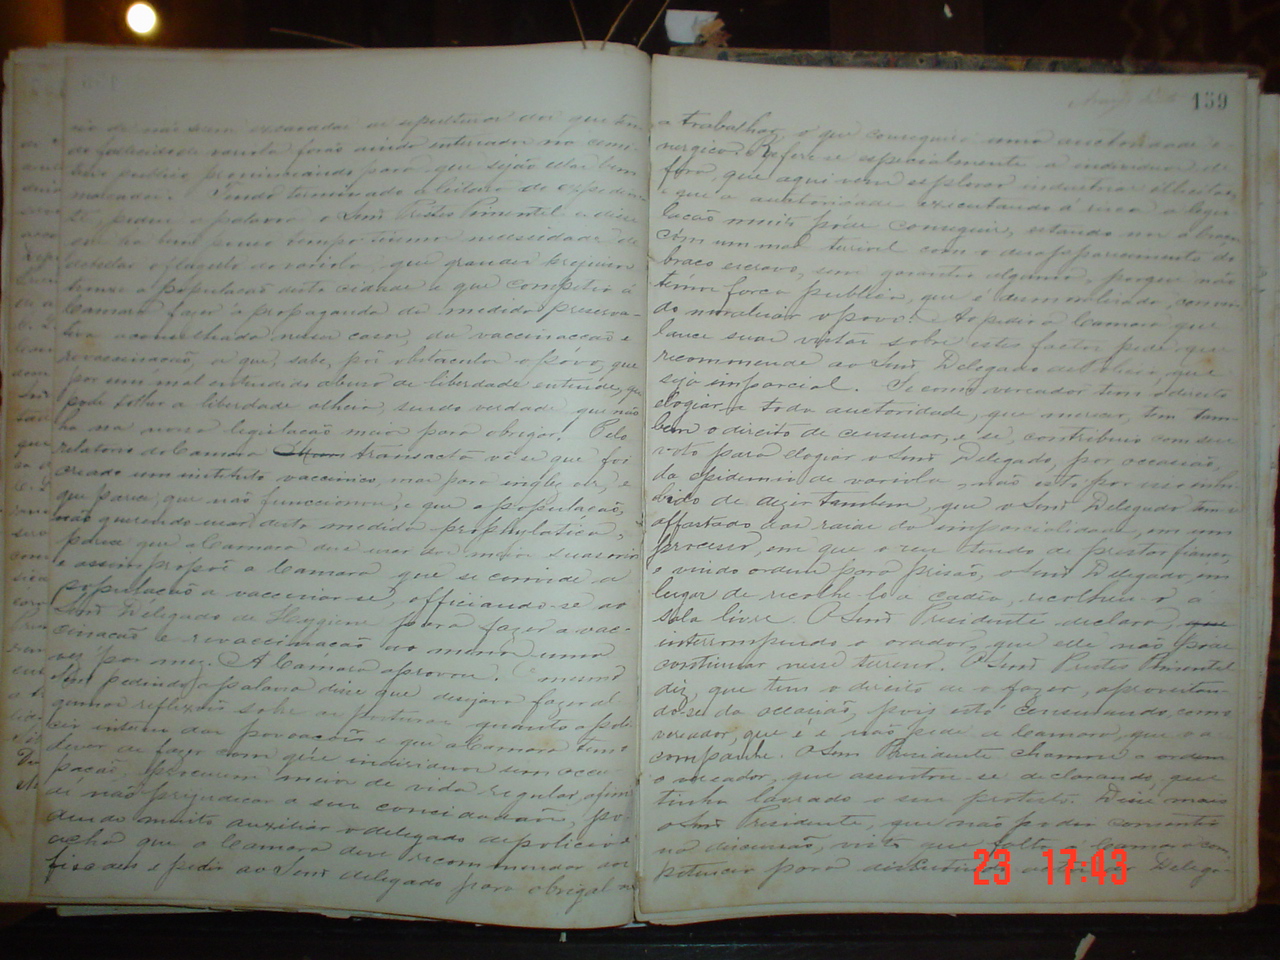 rio de não serem excavadas as sepulturas dos que tem
do fallecido de variola forão ainda enterrados no cemi-
terio publico providenciando para que sejão ellas bem
marcadas. Tendo terminado a leitura do expedien-
te, pediu a palavra o Snr̃ Pestes Pimentel e disse
que ha bem pouco tempo tivemos necessidade de
o flagello da variola, que grandes prejuisos
trouxe a população desta cidade e que competia á
Camara fazer a propaganda da medida preserva-
tiva aconselhada nesse caso, da vaccinação e
revaccinação, a que, sabe, põe obstaculos o povo, que
por um mal entendido abuso de liberdade entende, que
pode tolher a liberdade alheia, sendo verdade que não
ha na nossa legislação meio para obrigar. Pelo
relatorio da Camara transacta vê-se que foi
creado um instituto vaccinico, mas para inglez ver, e
que parece, que não funccionou, e que a população,
não querendo usar desta medida prophylatica,
parece que a Camara deve usar do meio suasorio
e assim propõe a Camara que se convide a
população a vaccinar-se, officiando-se ao
Snr̃ Delegado de Hygiene para fazer a vac-
cinação e revaccinação ao menos uma
vez por mez. A Camara aprovou. O mesmo
Snr̃ pedindo a palavra disse que desejava fazer al-
gumas reflexões sobre as posturas quanto a poli-
cia interna das povoações e que a Camara tem o
dever de fazer com que individuos sem occu-
pação, procurem meios de vida regular, afim
de não prejudicar a seus concidadãos, po-
dendo muito auxiliar o delegado de policia e
acha que a Camara deve recommendar aos
fiscaes e pedir ao Snr̃ delegado para obrigal-os
159
a trabalhar, o que conseguirá uma auctoridade e-
nergica. Refere-se especialmente a individuos de
fora, que aqui vem explorar industrias illicitas,
e que a auctoridade executando á risca a legis-
lação muito póde conseguir, estando nos a braços
com um mal terrivel com o desapparecimento do
braço escravo, sem garantia alguma, porque não
temos força publica, que é desmoralisada, convin-
do moralisar o povo. Ao pedir a Camara que
lance suas vistas sobre estes factos pede que
recommende ao Snr̃ Delegado de policia, que
seja imparcial. Se como vereador tem o direito
elogiar a toda auctoridade, que merecer, tem tam-
bem o direito de censurar, e se, contribuio com seu
voto para elogiar o Snr̃ Delegado, por occasião
da epidemia de variola, não está por isso inhi-
bido de dizer tambem, que o Snr̃ Delegado tem-se
affastado das raias da imparcialidade, em um
processo, em que o reu tendo de prestar fiança,
e vindo ordem para prisão, o Snr̃ Delegado, em
lugar de recolhe-lo a cadêa, recolheu-o á
sala livre. O Snr̃ Presidente declara, que
interrompendo o orador, que elle não póde
continuar nesse terreno. O Snr̃ Pestes Pimentel
diz, que tem o direito de o fazer, aproveitan-
do-se da occasião, pois está censurando, como
vereador, que é e não pede a Camara, que o a-
companhe. O Snr̃ Presidente chamou a ordem
o vereador, que assentou-se declarando, que
tinha lavrado o seu protesto. Disse mais
o Snr̃ Presidente, que não podia consentir
na discussão, visto que falta a Camara com-
petencia para discutir os actos do Delega-
23 17:43